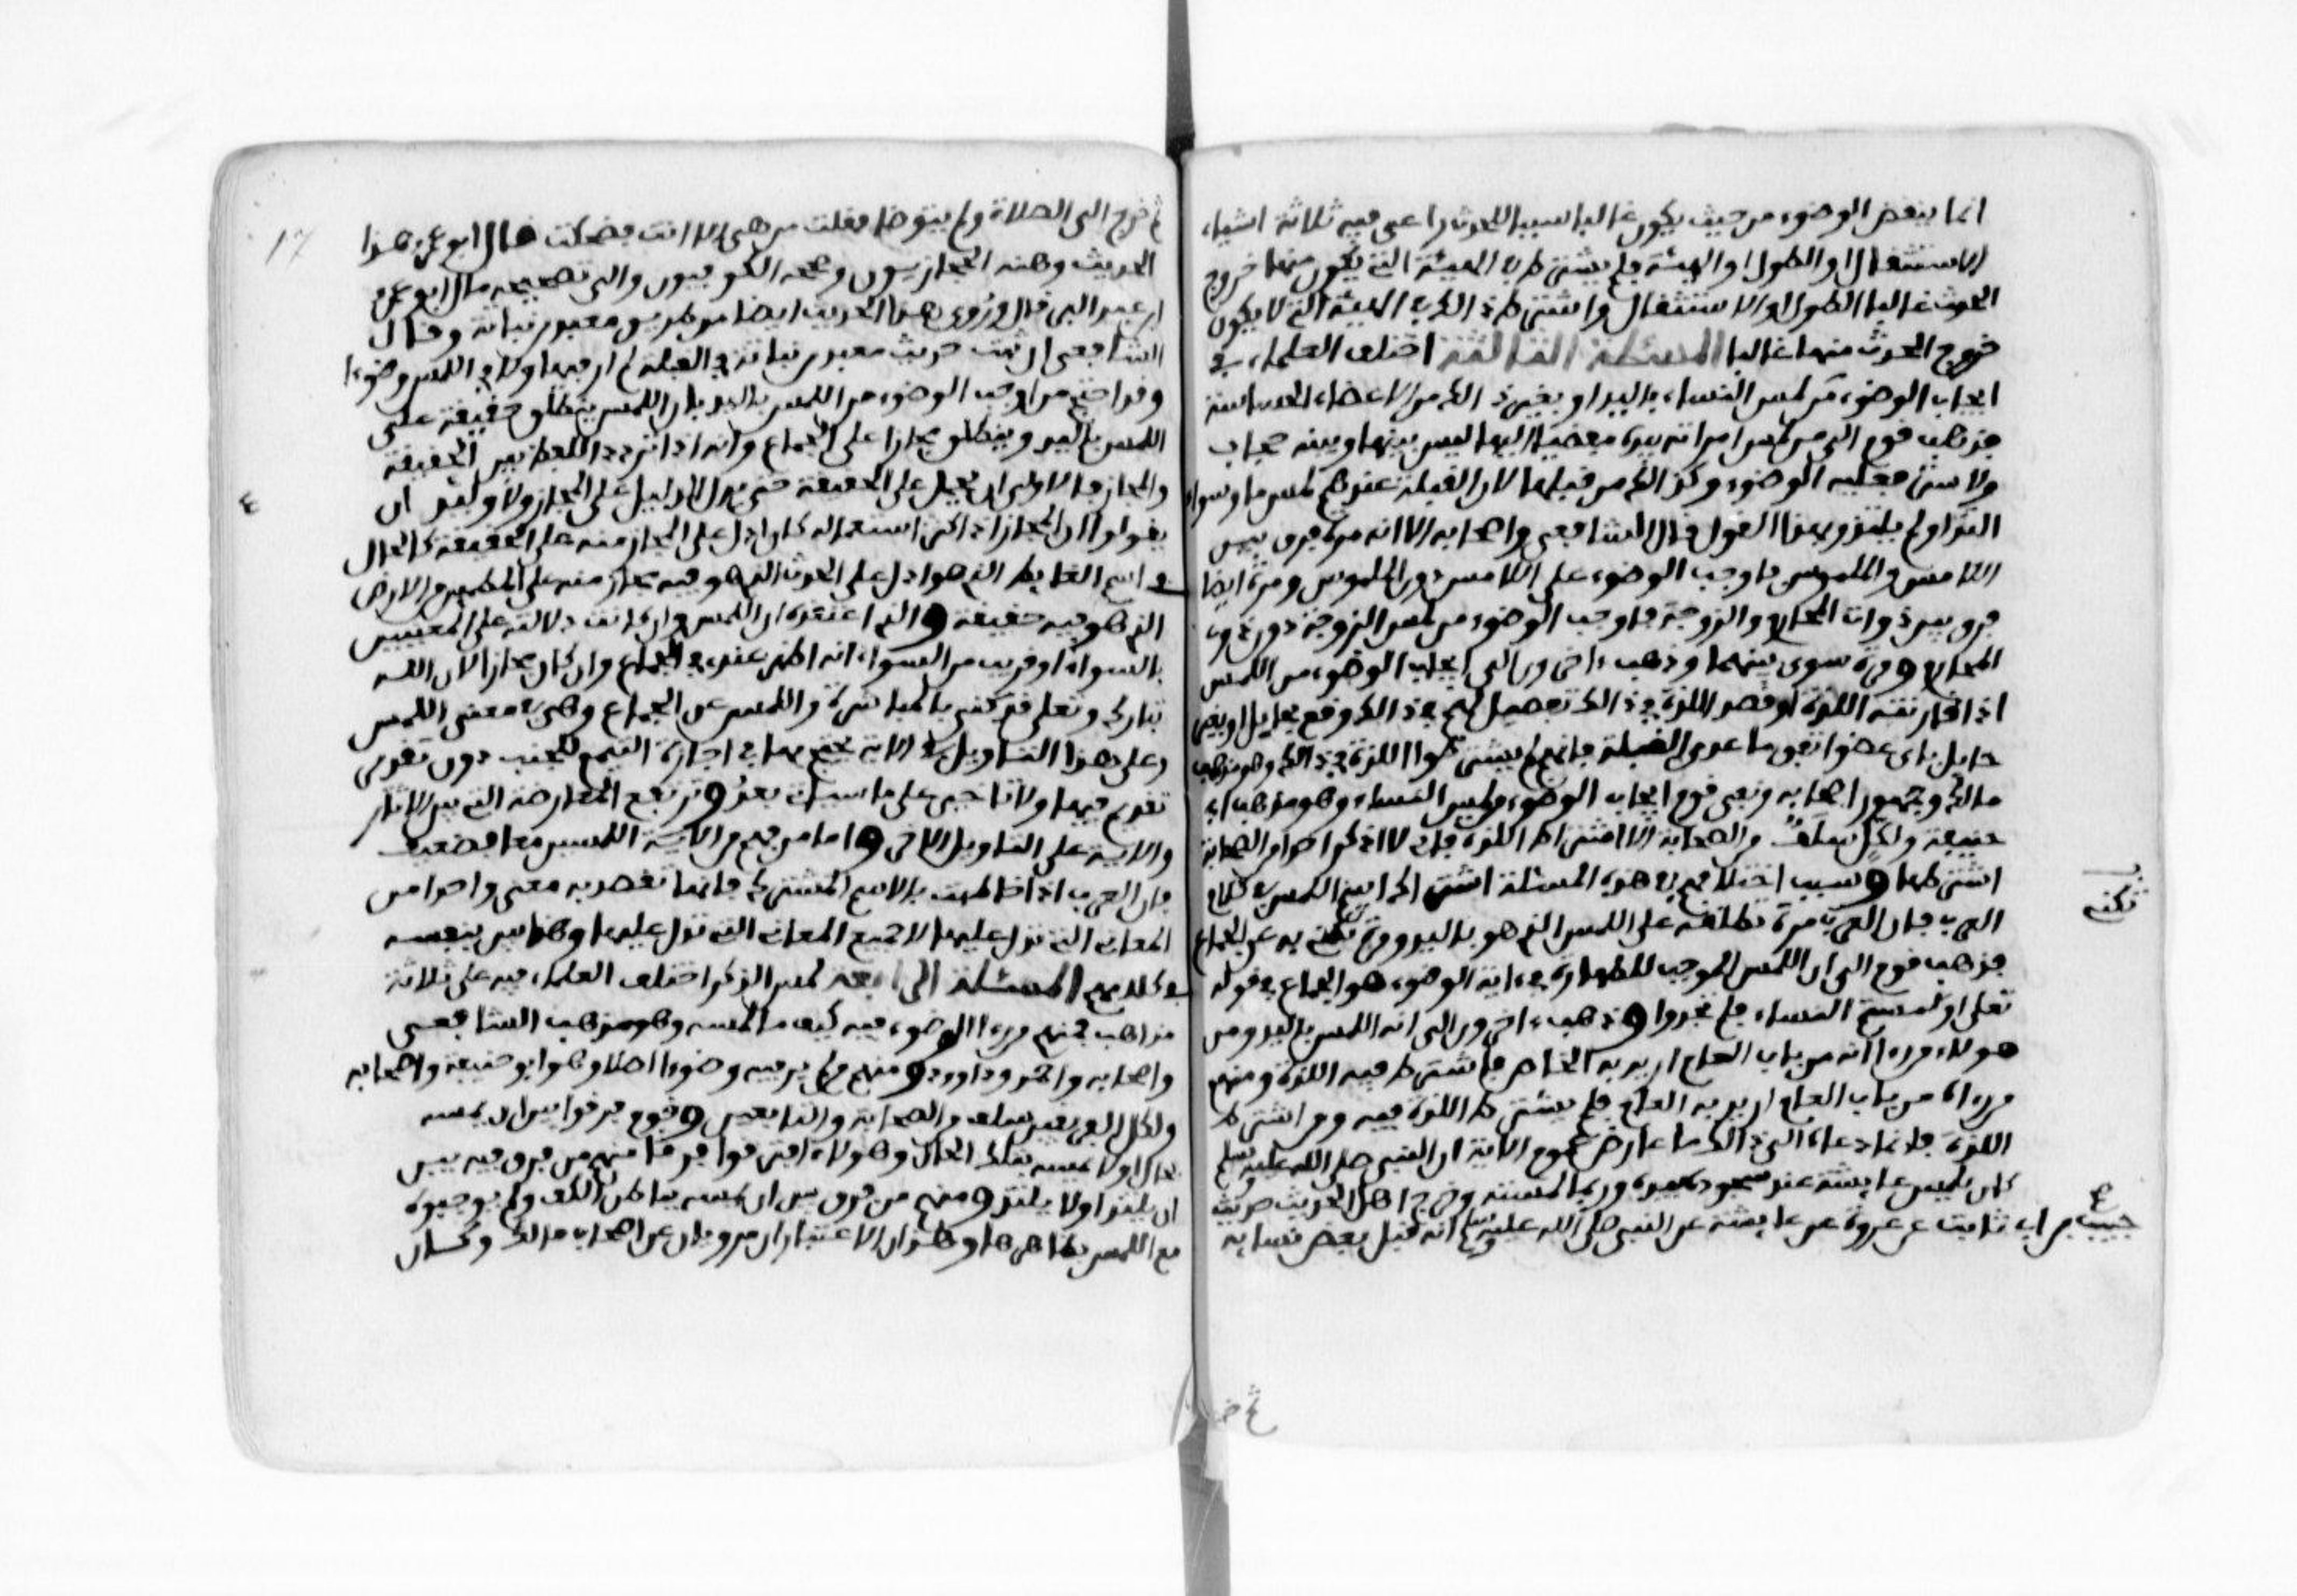 انما ينقض الوضوء من حيث يكون غالبا سببا للحدث راعى فيه ثلاثة اشياء
الاستثقال او الطول او الهيئة فلم يشترط في الهيئة التي يكون منها خروج
الحدث غالبا الطول ولا الاستثقال واشترط ذلك في الهيئة التي لا يكون
خروج الحدث منها غالبا المسئلة الثالثة اختلف العلماء في
ايجاب الوضوء من لمس النساء باليد او بغير ذلك من الاعضاء الحساسة
فذهب قوم الى من لمس امراته بيده مفضيا اليها ليس بينها وبينه حجاب
ولا ستر فعليه الوضوء وكذلك من قبلها لان القبلة عندهم لمس ما وسواء
التذ او لم يلتذ وبهذا القول قال الشافعي واصحابه الا انه مرة فرق بين
اللامس والملموس فاوجب الوضوء على اللامس دون الملموس ومرة ايضا
فرق بين ذوات المحارم والزوجة فاوجب الوضوء من لمس الزوجة دون ذوات
المحارم ومرة سوى بينهما وذهب ءاخرون الى ايجاب الوضوء من اللمس
اذا قارنته اللذة او قصد اللذة في ذلك تفصيل لهم في ذلك وقع بحايل او بغير
حايل باى عضو اتفق ما عدى القبلة فانهم لم يشترطوا اللذة في ذلك وهو مذهب
مالك وجمهور اصحابه ونفى قوم ايجاب الوضوء في لمس النساء وهو مذهب ابي
حنيفة ولكل سلف من الصحابة الا اشتراط اللذة فاني لا اذكر احدا من الصحابة
اشترطها وسبب اختلافهم في هذه المسئلة اشتراك اسم اللمس في كلام
العرب فان العرب مرة تطلقه على اللمس الذي هو باليد ومرة تكني به عن الجماع
فذهب قوم الى ان اللمس الموجب للطهارة في ءاية الوضوء هو الجماع في قوله
تعلى او لمستم النساء فلم تجدوا وذهب ءاخرون الى انه اللمس باليد ومن
هولاء من رءا انه من باب العام اريد به الخاص فاشترط فيه اللذة ومنهم
من رءاه من باب العام اريد به العام فلم يشترط اللذة فيه ومن اشترط
اللذة فانما دعاه الى ذلك ما عارض عموم الاية ان النبي صلى الله عليه وسلم
كان يلمس عايشة عند سجوده بيده وربما لمسته وخرج اهل الحديث حديث
حبيب بن ابي ثابت عن عروة عن عايشة عن النبي صلى الله عليه وسلم انه قبل بعض نسايه
تكني
ثم خرج
17
ثم خرج الى الصلاة ولم يتوضا فقلت من هى الا انت فضحكت قال ابو عمر هذا
الحديث وهنه الحجازيون وصححه الكوفيون والى تصحيحه مال ابو عمر
ابن عبد البر قال وروي هذا الحديث ايضا من طريق معبد بن نباتة وقال
الشافعي ان ثبت حديث معبد بن نباتة في القبلة لم ار فيها ولا في اللمس وضوءا
وقد احتج من اوجب الوضوء من اللمس باليد بان اللمس ينطلق حقيقة على
اللمس باليد وينطلق مجازا على الجماع وانه اذا تردد اللفظ بين الحقيقة
والمجاز فالاولى ان يحمل على الحقيقة حتى يدل الدليل على المجاز ولاولئك ان
يقولوا ان المجاز اذا كثر استعماله كان ادل على المجاز منه على الحقيقة كالحال
في اسم الغايط الذي هو ادل على الحدث الذي هو فيه مجاز منه على المطمين من الارض
الذي هو فيه حقيقة والذي اعتقده ان اللمس وان كانت دلالته على المعنيين
بالسواء او قريب من السواء انه اظهر عندي في الجماع وان كان مجازا لان الله
تبارك وتعلى قد كنى بالمباشرة واللمس عن الجماع وهى في معنى اللمس
وعلى هذا التاويل في الاية يحتج بها في اجازة التيمم للجنب دون تقدير
تقديم فيها ولا تاخير على ما سياتي بعد وترتفع المعارضة التي بين الاثار
والاية على التاويل الاخر واما من فهم من الاية اللمسين معا فضعيف
فان العرب اذا خاطبت بالاسم المشترك فانما تقصد به معنى واحدا من
المعاني التي تدل عليها لا جميع المعاني التي تدل عليها وهذا بين بنفسه
في كلامهم المسئلة الرابعة لمس الذكر اختلف العلماء فيه على ثلاثة
مذاهب فمنهم من رءا الوضوء فيه كيف ما لمسه وهو مذهب الشافعي
واصحابه واحمد وداوود ومنهم من لم ير فيه وضوءا اصلا وهو ابو حنيفة واصحابه
ولكل الفريقين سلف من الصحابة والتابعين وقوم فرقوا بين ان يمسه
بحال او لا يمسه بتلك الحال وهولاء افترقوا فرقا منهم من فرق فيه بين
ان يلتذ او لا يلتذ ومنهم من فرق بين ان يمسه بباطن الكف ولم يوجبوه
مع اللمس بظاهرها وهذان الاعتباران مرويان عن اصحاب مالك وكان